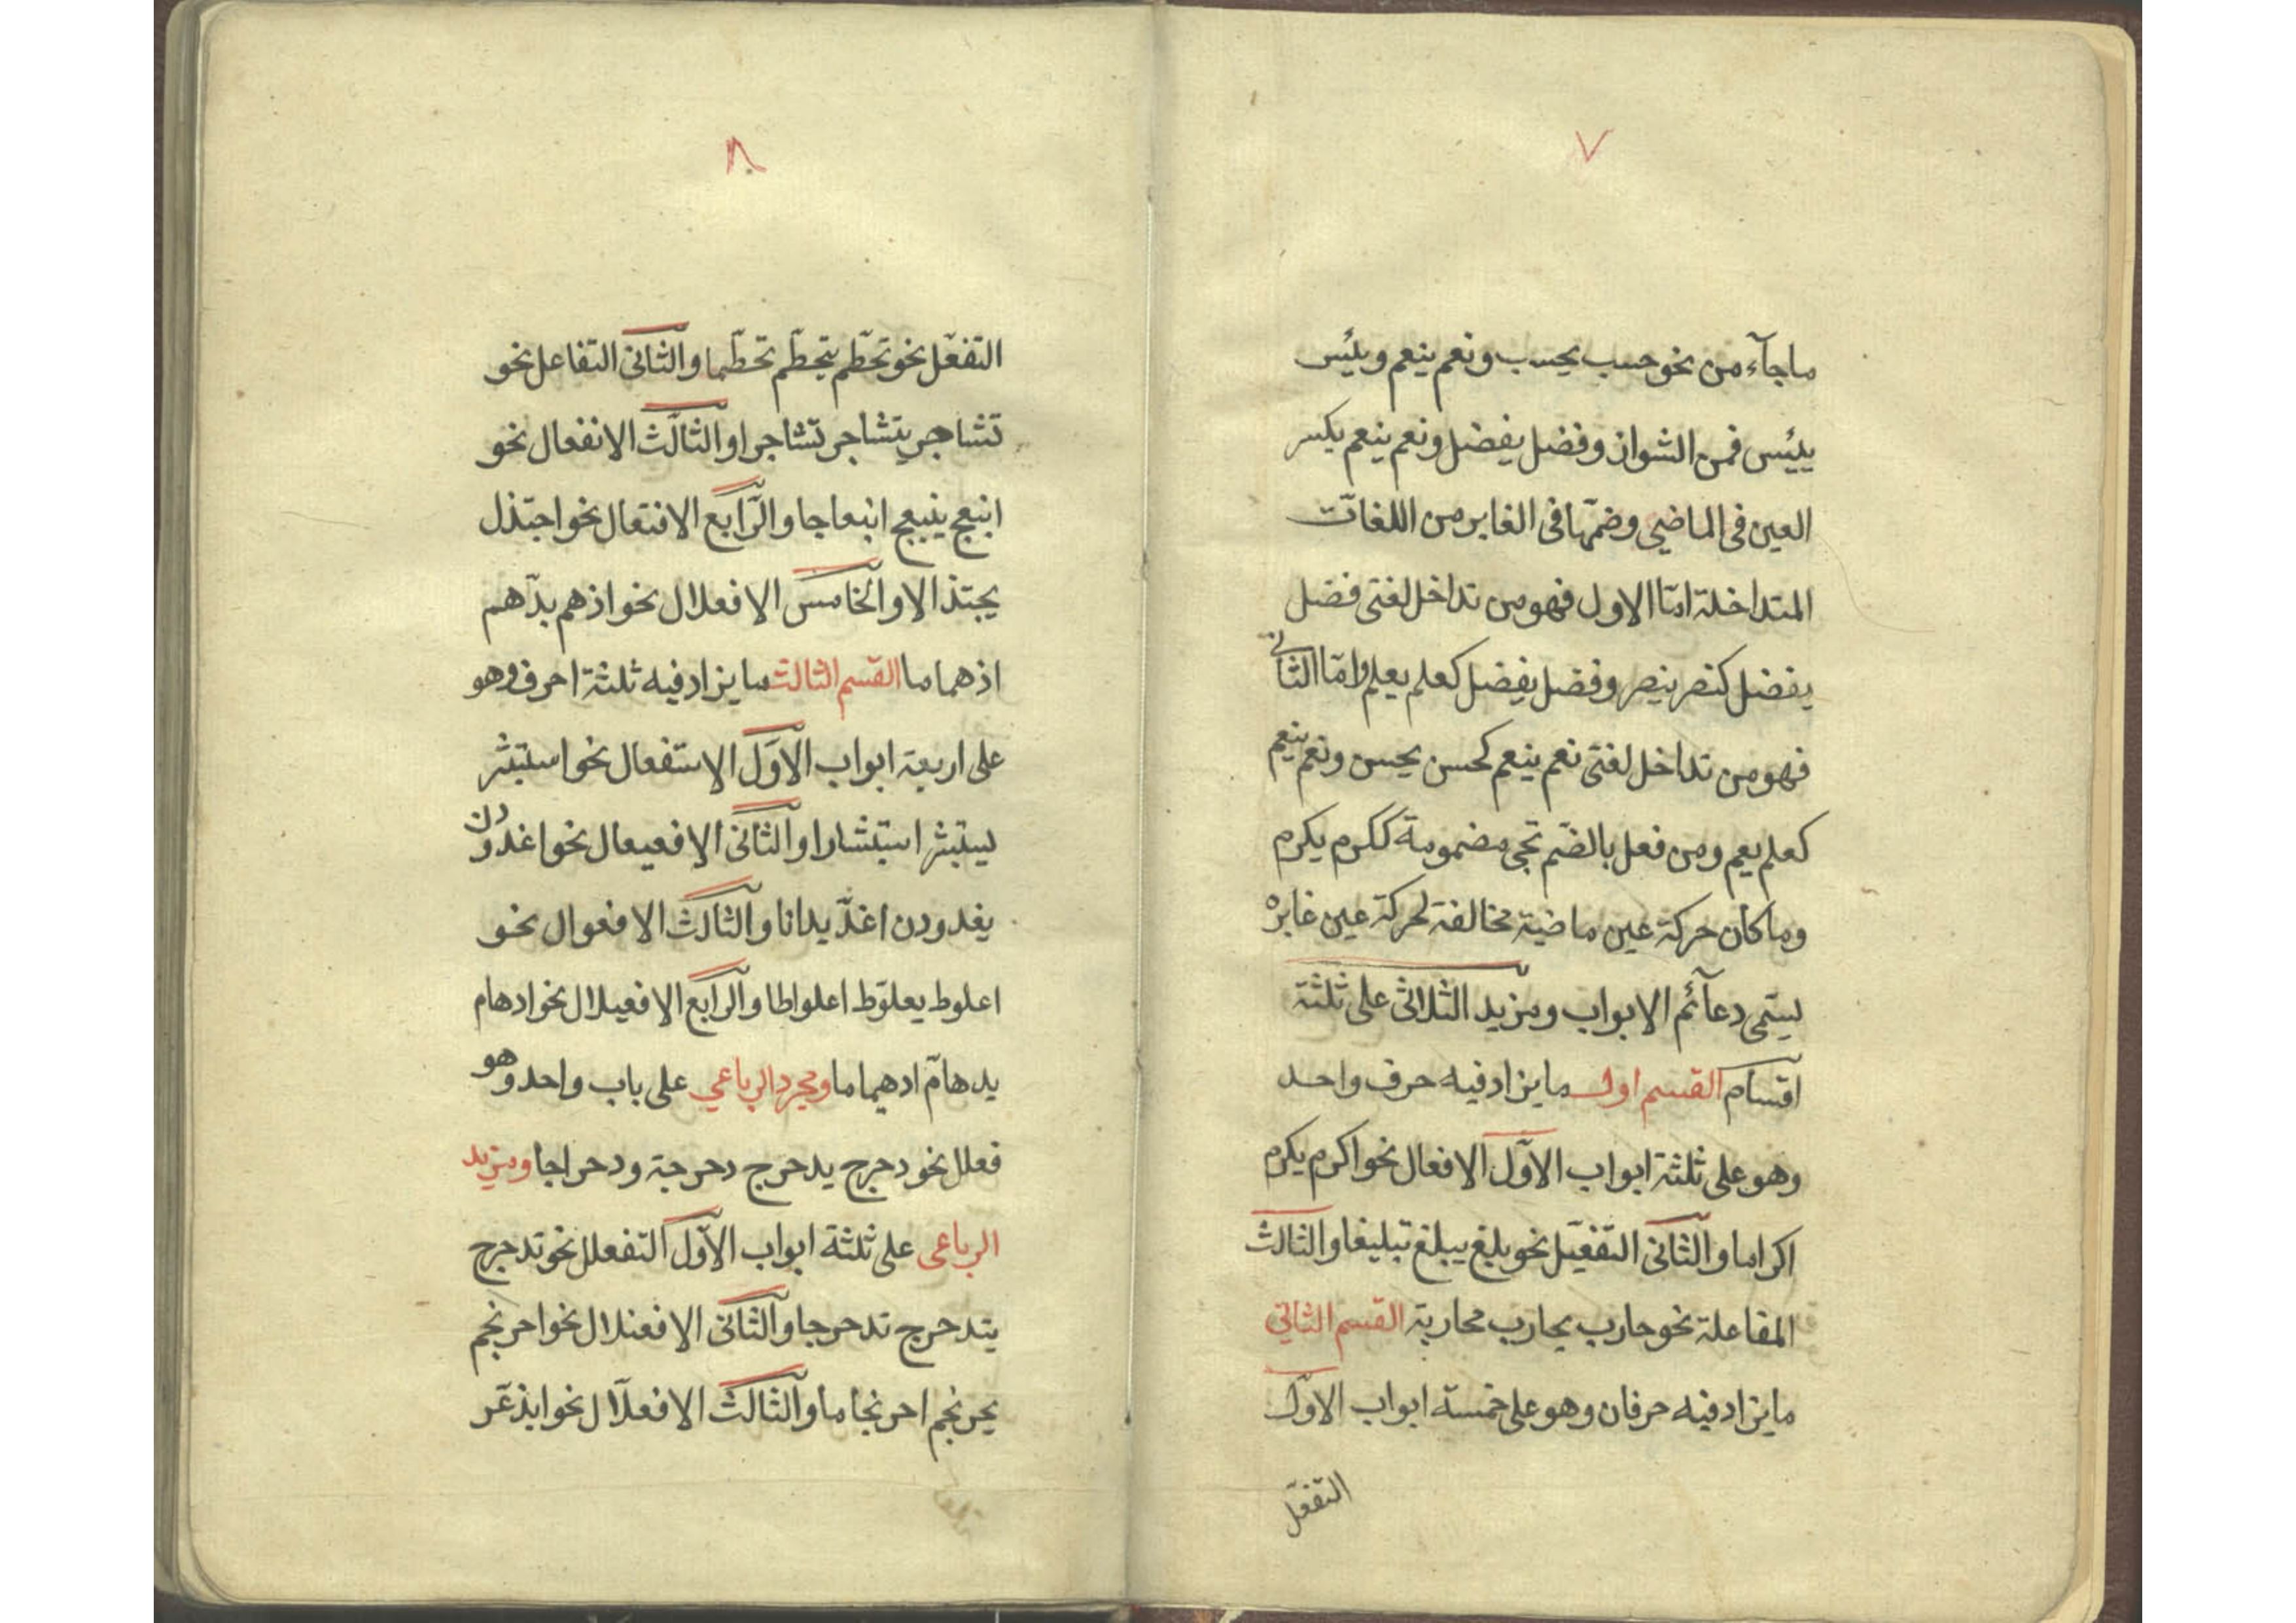 ٧
ماجآء من نحو حسب يحسب ونعم ينعم ويئس
ييئس فمن الشواذ وفضل يفضل ونعم ينعم بكسر
العين فى الماضى وضمّها فى الغابر من اللغات
المتداخلة امّا الاول فهو من تداخل لغتى فضل
يفضل كنصر ينصر وفضل يفضل كعلم يعلم وامّا الثانى
فهو من تداخل لغتى نعم ينعم كحسن يحسن ونعم ينعم
كعلم يعم ومن فعل بالضم تجى مضمومة ككرم يكرم
وما كان حركة عين ماضية مخالفة لحركة عين غابره
يسمّى دعآئم الابواب ومزيد الثلاثى على ثلثة
اقسام القسم اول ما يزاد فيه حرف واحد
وهو على ثلثة ابواب الاوّل الافعال نحو اكرم يكرم
اكراما والثانى التفعيل نحو بلغ يبلغ تبليغا والثالث
المفاعلة نحو حارب يحارب محاربة القسم الثانى
ما يزاد فيه حرفان وهو على خمسة ابواب الاوّل
التفعّل
٨
التفعّل نحو تحطّم يتحطّم تحطّما والثانى التفاعل نحو
تشاجر يتشاجر تشاجرا والثالث الانفعال نحو
انبعج ينبعج انبعاجا والرّابع الافتعال نحو اجتذل
يجتذ الا والخامس الافعلال نحو اذهم يدّهم
اذهماما القسم الثالث ما يزاد فيه ثلثة احرف وهو
على اربعة ابواب الاوّل الاستفعال نحو استبشر
يستبشر استبشارا والثانى الافعيعال نحو اغدودن
يغدودن اغديدانا والثالث الافعوال نحو
اعلوط يعلوّط اعلواطا والرابع الافعيلال نحو ادهام
يدهامّ ادهيماما ومجرد الرباعي على باب واحد وهو
فعلل نحو دحرج يدحرج دحرجة ودحراجا ومزيد
الرباعى على ثلثة ابواب الاوّل التفعلل نحو تدحرج
يتدحرج تدحرجا والثانى الافعنلال نحو احرنجم
يحرنجم احرنجاما والثالث الافعلّال نحو ابذعّر